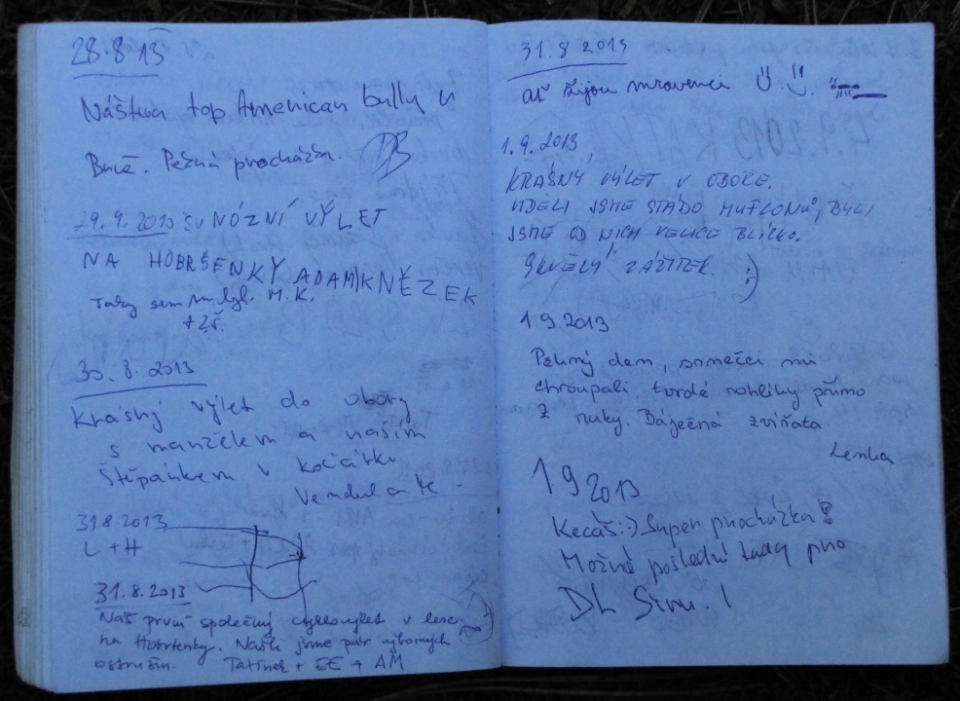 28.8.13
top American bully u
Pěkná procházka. DB
29.9.2013 VÝLET
NA ADAM KNĚZEK
Taky sem M.K.
30.8.2013
Krásný výlet do obory
s manželem a naším
Štěpánkem v kočárku
31.8.2013
L + H
31.8.2013
Náš první společný cyklovýlet v lese
na Hobrtenky. Našli jsme pár výborných
ostružin. Tatínek + EE + AM
31.8 2013
ať žijou mravenci
1.9.2013
KRÁSNÝ VÝLET V OBOŘE.
VIDĚLI JSME STÁDO MUFLONŮ, BYLI
JSME OD NICH VELICE BLÍZKO.
SKVĚLÝ ZÁŽITEK. :)
1 9 2013
Pěkný den, srnečci mi
chroupali tvrdé rohlíky přímo
z ruky. Báječná zvířata.
Lenka
1 9 2013
Kecáš :) Super procházka!
Možná poslední tady pro
DL